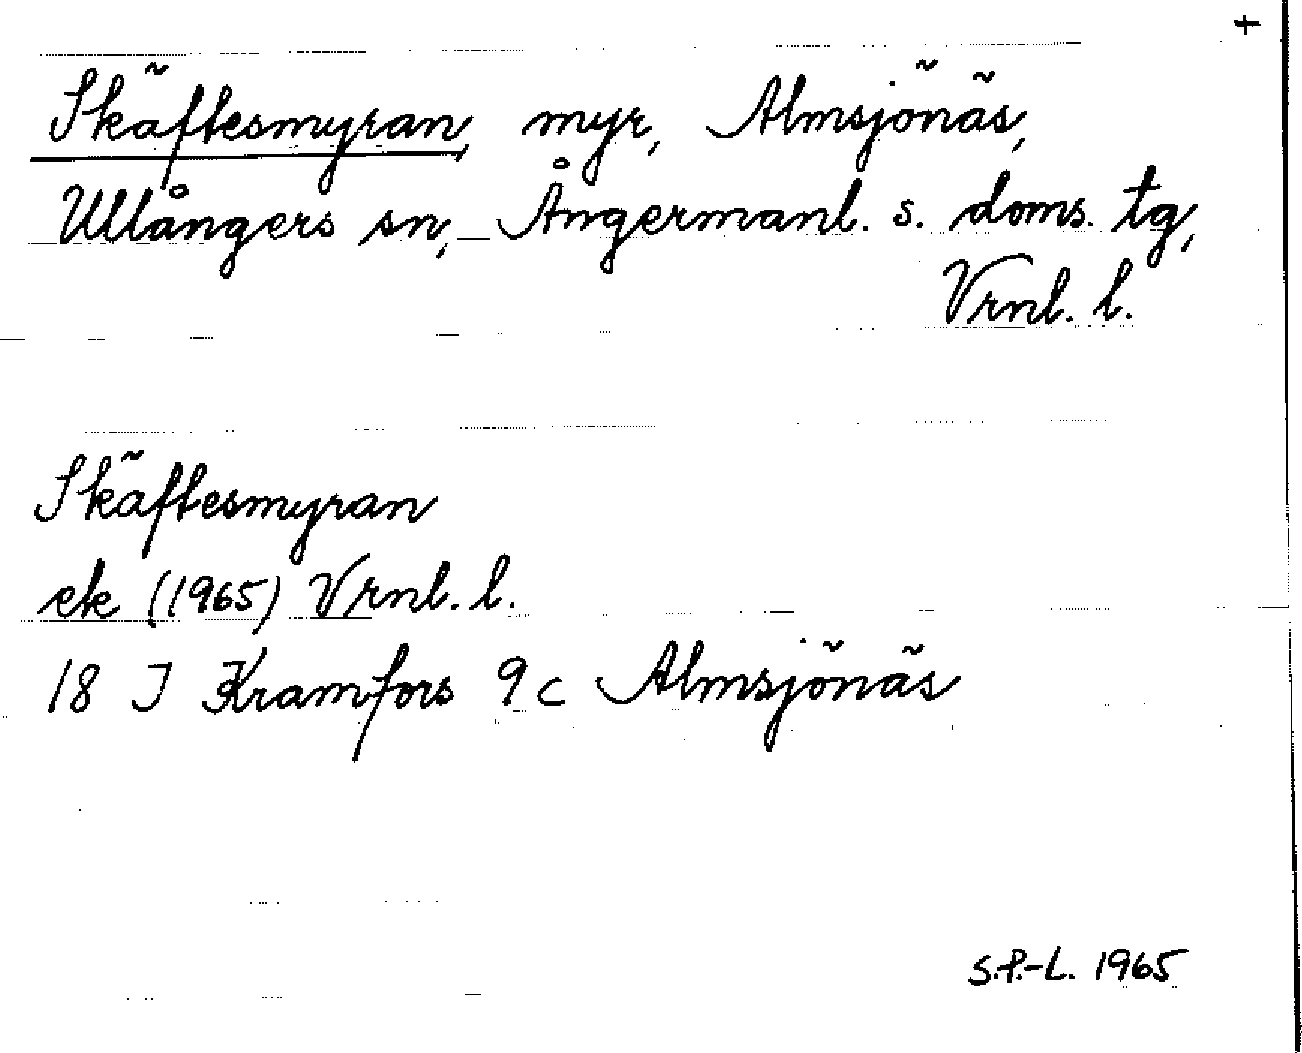 +
Skäftesmyran, myr, Almsjönäs,
Ullångers sn, Ångermanl. s. doms. tg,
Vrnl. l.
Skäftesmyran
ek (1965) Vrnl. l.
18 I Kramfors 9 c Almsjönäs
S.P.-L. 1965